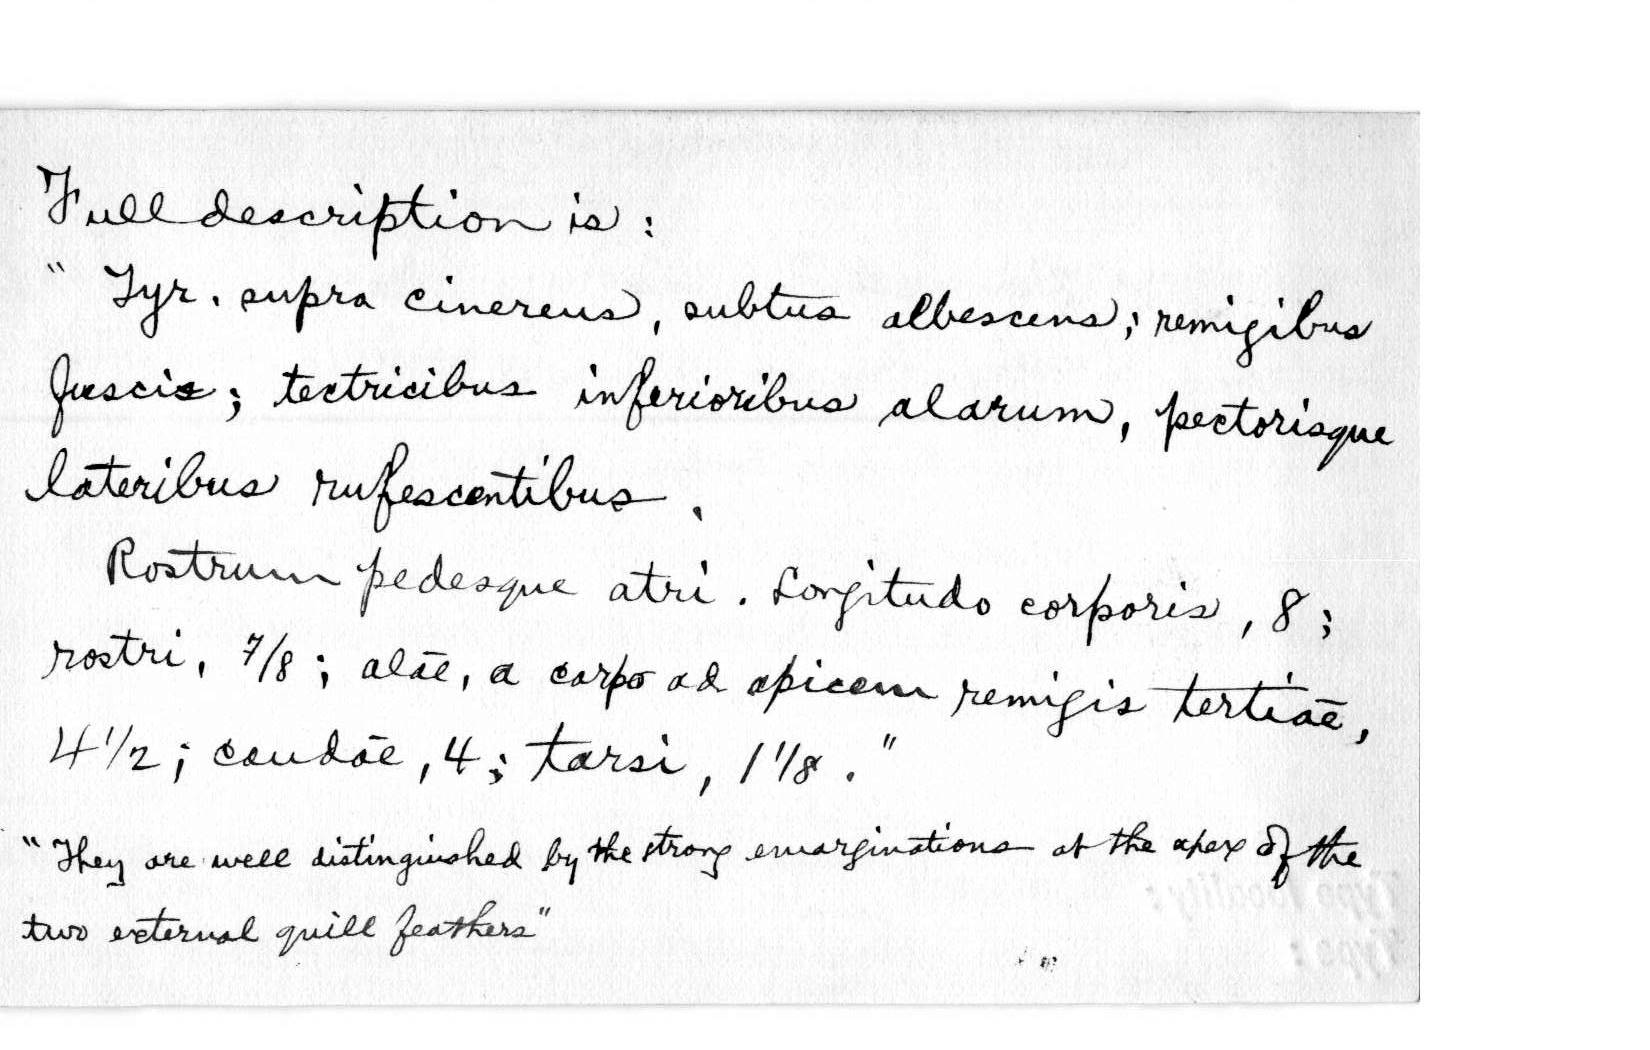 Full description is:
" Tyr. supra cinereus, subtus albescens; remigibus
fuscis; tectricibus inferioribus alarum, pectorisque
lateribus rufescentibus.
Rostrum pedesque atri. Longitudo corporis, 8;
rostri, 7/8; alāe, a carpo ad apicem remigis tertiāe,
4 1/2; caudāe, 4; tarsi, 1 1/8."
"They are well distinguished by the strong emarginations at the apex of the
two external quill feathers"
Type locality:
Type: